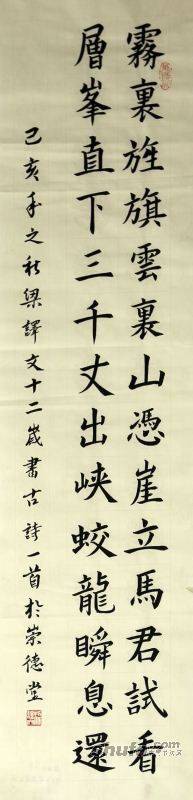 霧裏旌旗雲裏山憑崖立馬君試看
層峯直下三千丈出峽蛟龍瞬息還
己亥年之秋梁譯文十二歲書古詩一首於崇德堂